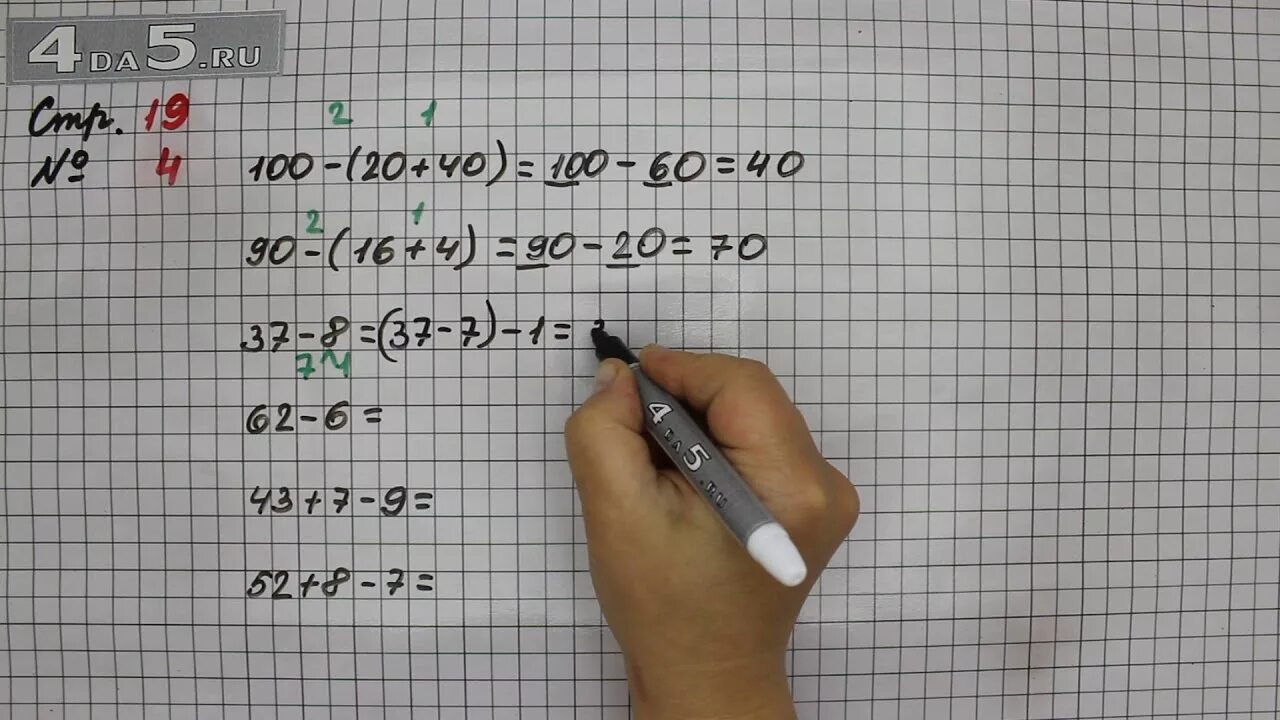 4DA5.RU
Стр. 19
№ 4
2 1
100-(20+40)=100-60=40
2 1
90-(16+4)=90-20=70
37-8=(37-7)-1=
7 1
62-6=
43+7-9=
52+8-7=
4DA5.RU